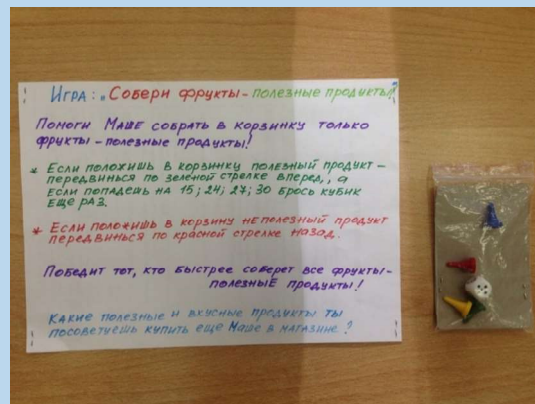 Игра: „Собери фрукты - полезные продукты!"
Помоги Маше собрать в корзинку только
фрукты - полезные продукты!
* Если положишь в корзинку полезный продукт -
передвинься по зеленой стрелке вперед,, а
если попадешь на 15; 24; 27; 30 брось кубик
еще раз.
* Если положишь в корзину не полезный продукт
передвинься по красной стрелке назад.
Победит тот, кто быстрее соберет все фрукты -
полезные продукты!
Какие полезные и вкусные продукты ты
посоветуешь купить еще Маше в магазине?